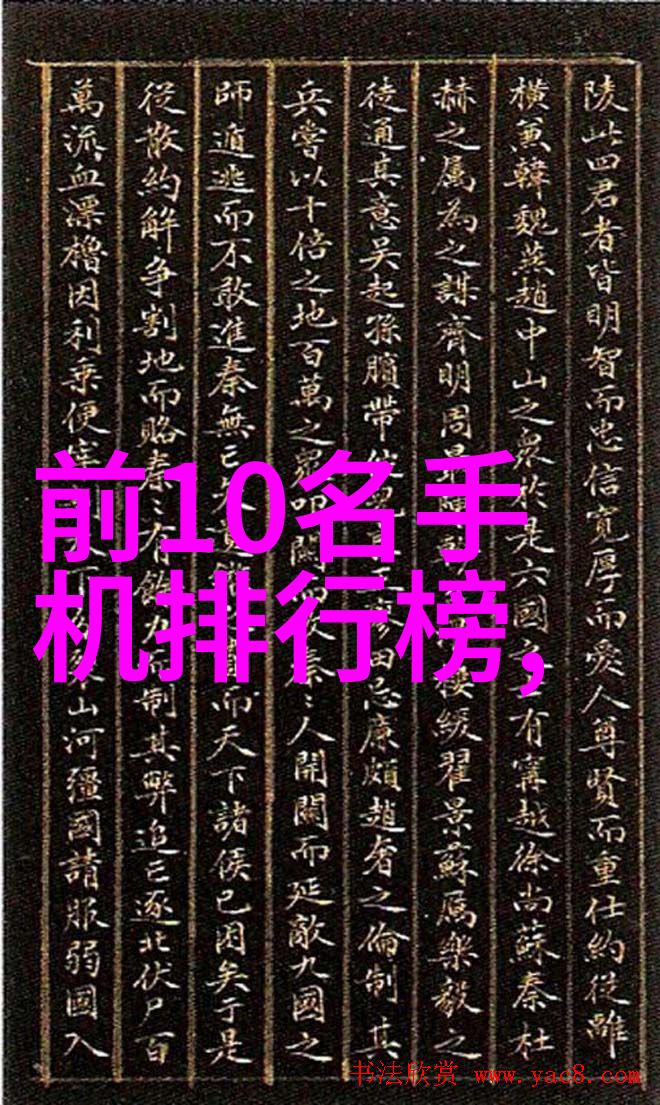 陵此四君者皆明智而忠信寬厚而愛人尊賢而重仕約從離
橫兼韓魏燕趙中山之衆於是六國之士有甯越徐尚蘇秦杜
赫之屬為之謀齊明周最陳軫 樓緩翟景蘇厲樂毅之
徒通其意吳起孫臏帶 田忌廉頗趙奢之倫制其
兵嘗以十倍之地百萬之衆叩關而攻秦秦人開關而延敵九國之
師遁逃而不敢進秦無亡矢 而天下諸侯已困矣于是
從散約解爭割地而賂秦秦有餘力 制其弊追亡逐北伏尸百
萬流血漂櫓因利乘便 山河彊國請服弱國入
前10名手
机排行榜,
书法欣赏 www.yac8.com